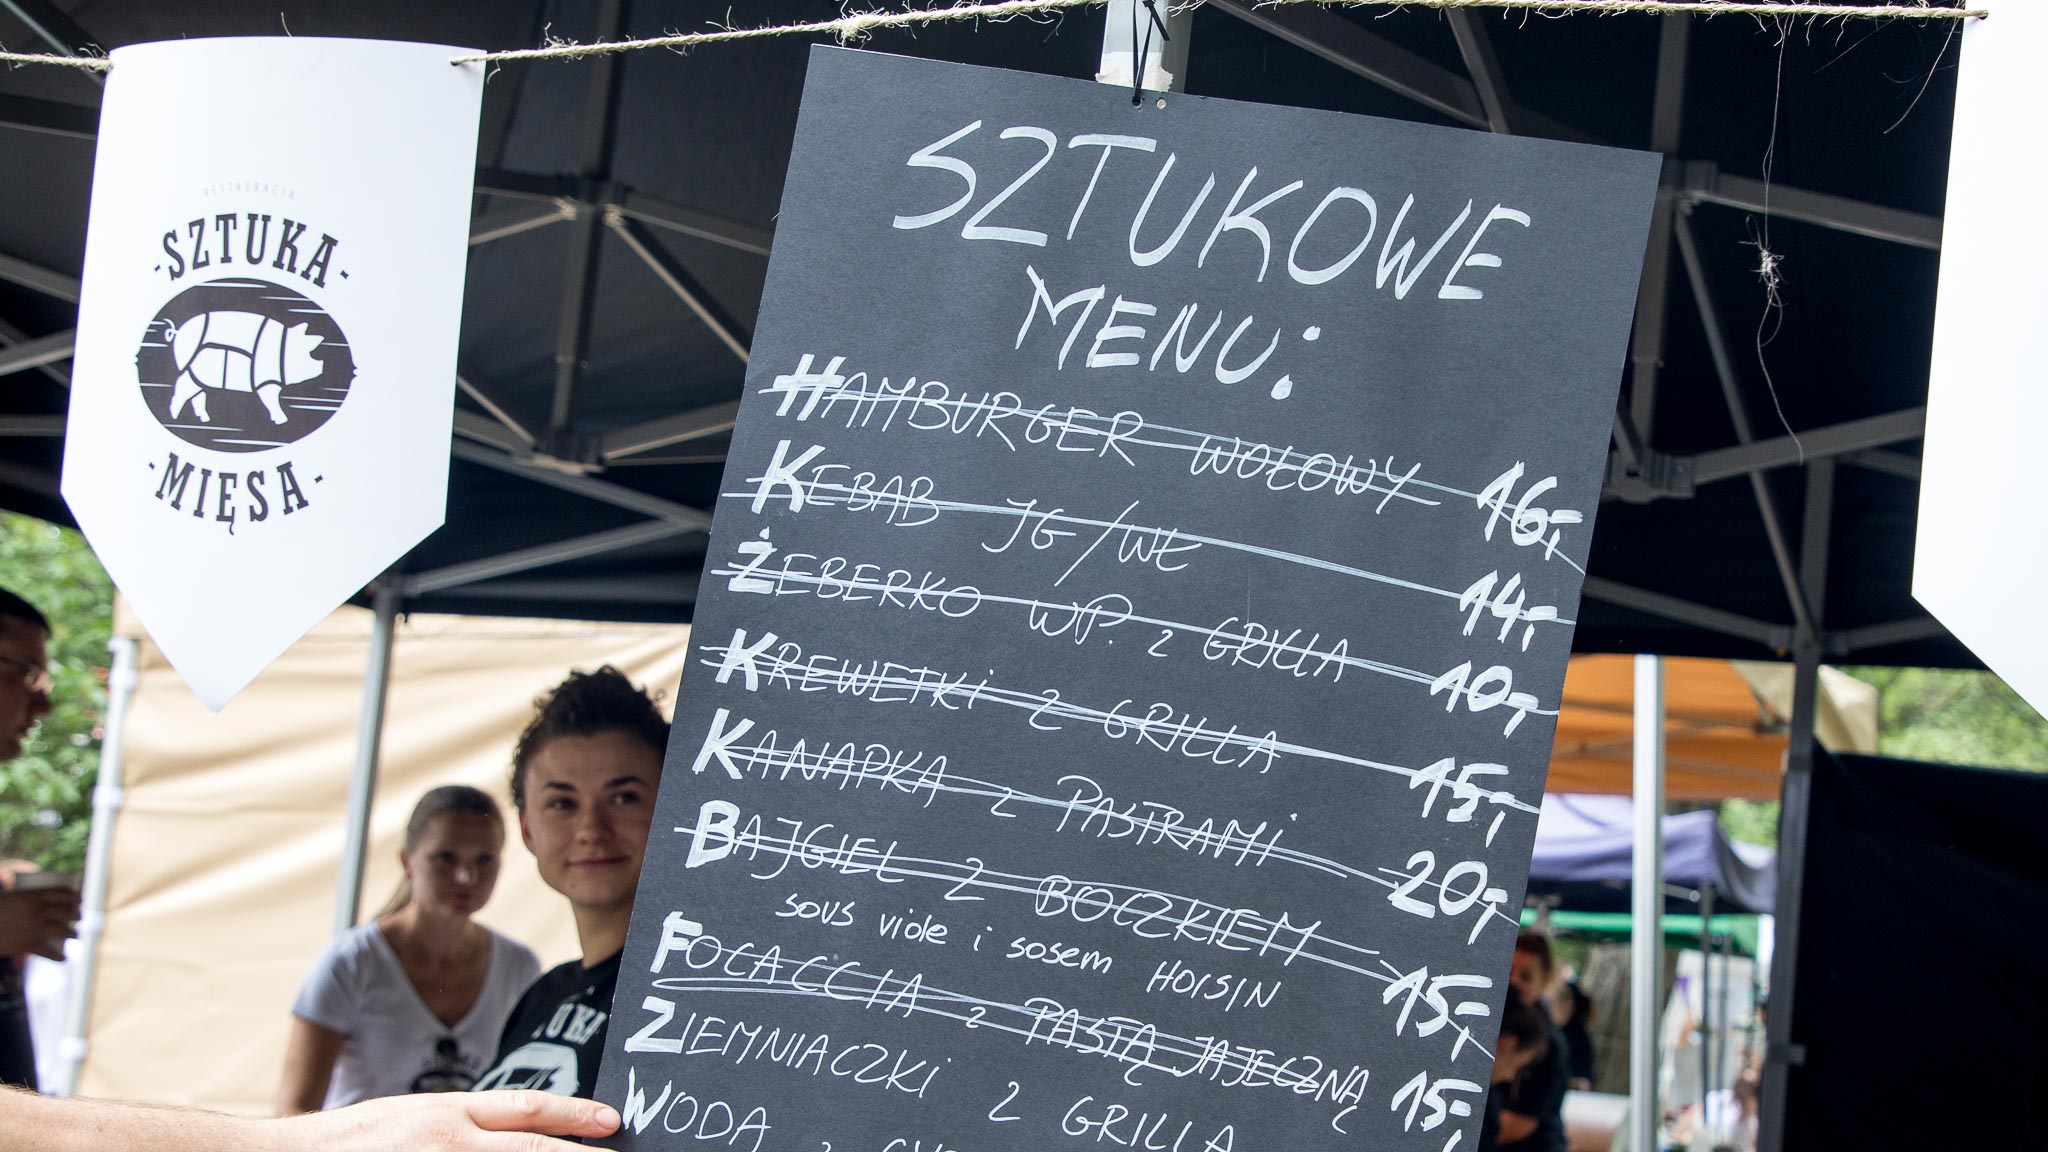 RESTAURACJA
·SZTUKA·
·MIĘSA·
SZTUKOWE
MENU:
HAMBURGER WOŁOWY 16,-
KEBAB JG/WŁ 14,-
ŻEBERKO WP. Z GRILLA 10,-
KREWETKI Z GRILLA 15,-
KANAPKA Z PASTRAMI 20,-
BAJGIEL Z BOCZKIEM 15,-
SOUS VIDE i SOSEM HOISIN
FOCACCIA Z PASTĄ JAJECZNĄ 15,-
ZIEMNIACZKI Z GRILLA
WODA Z